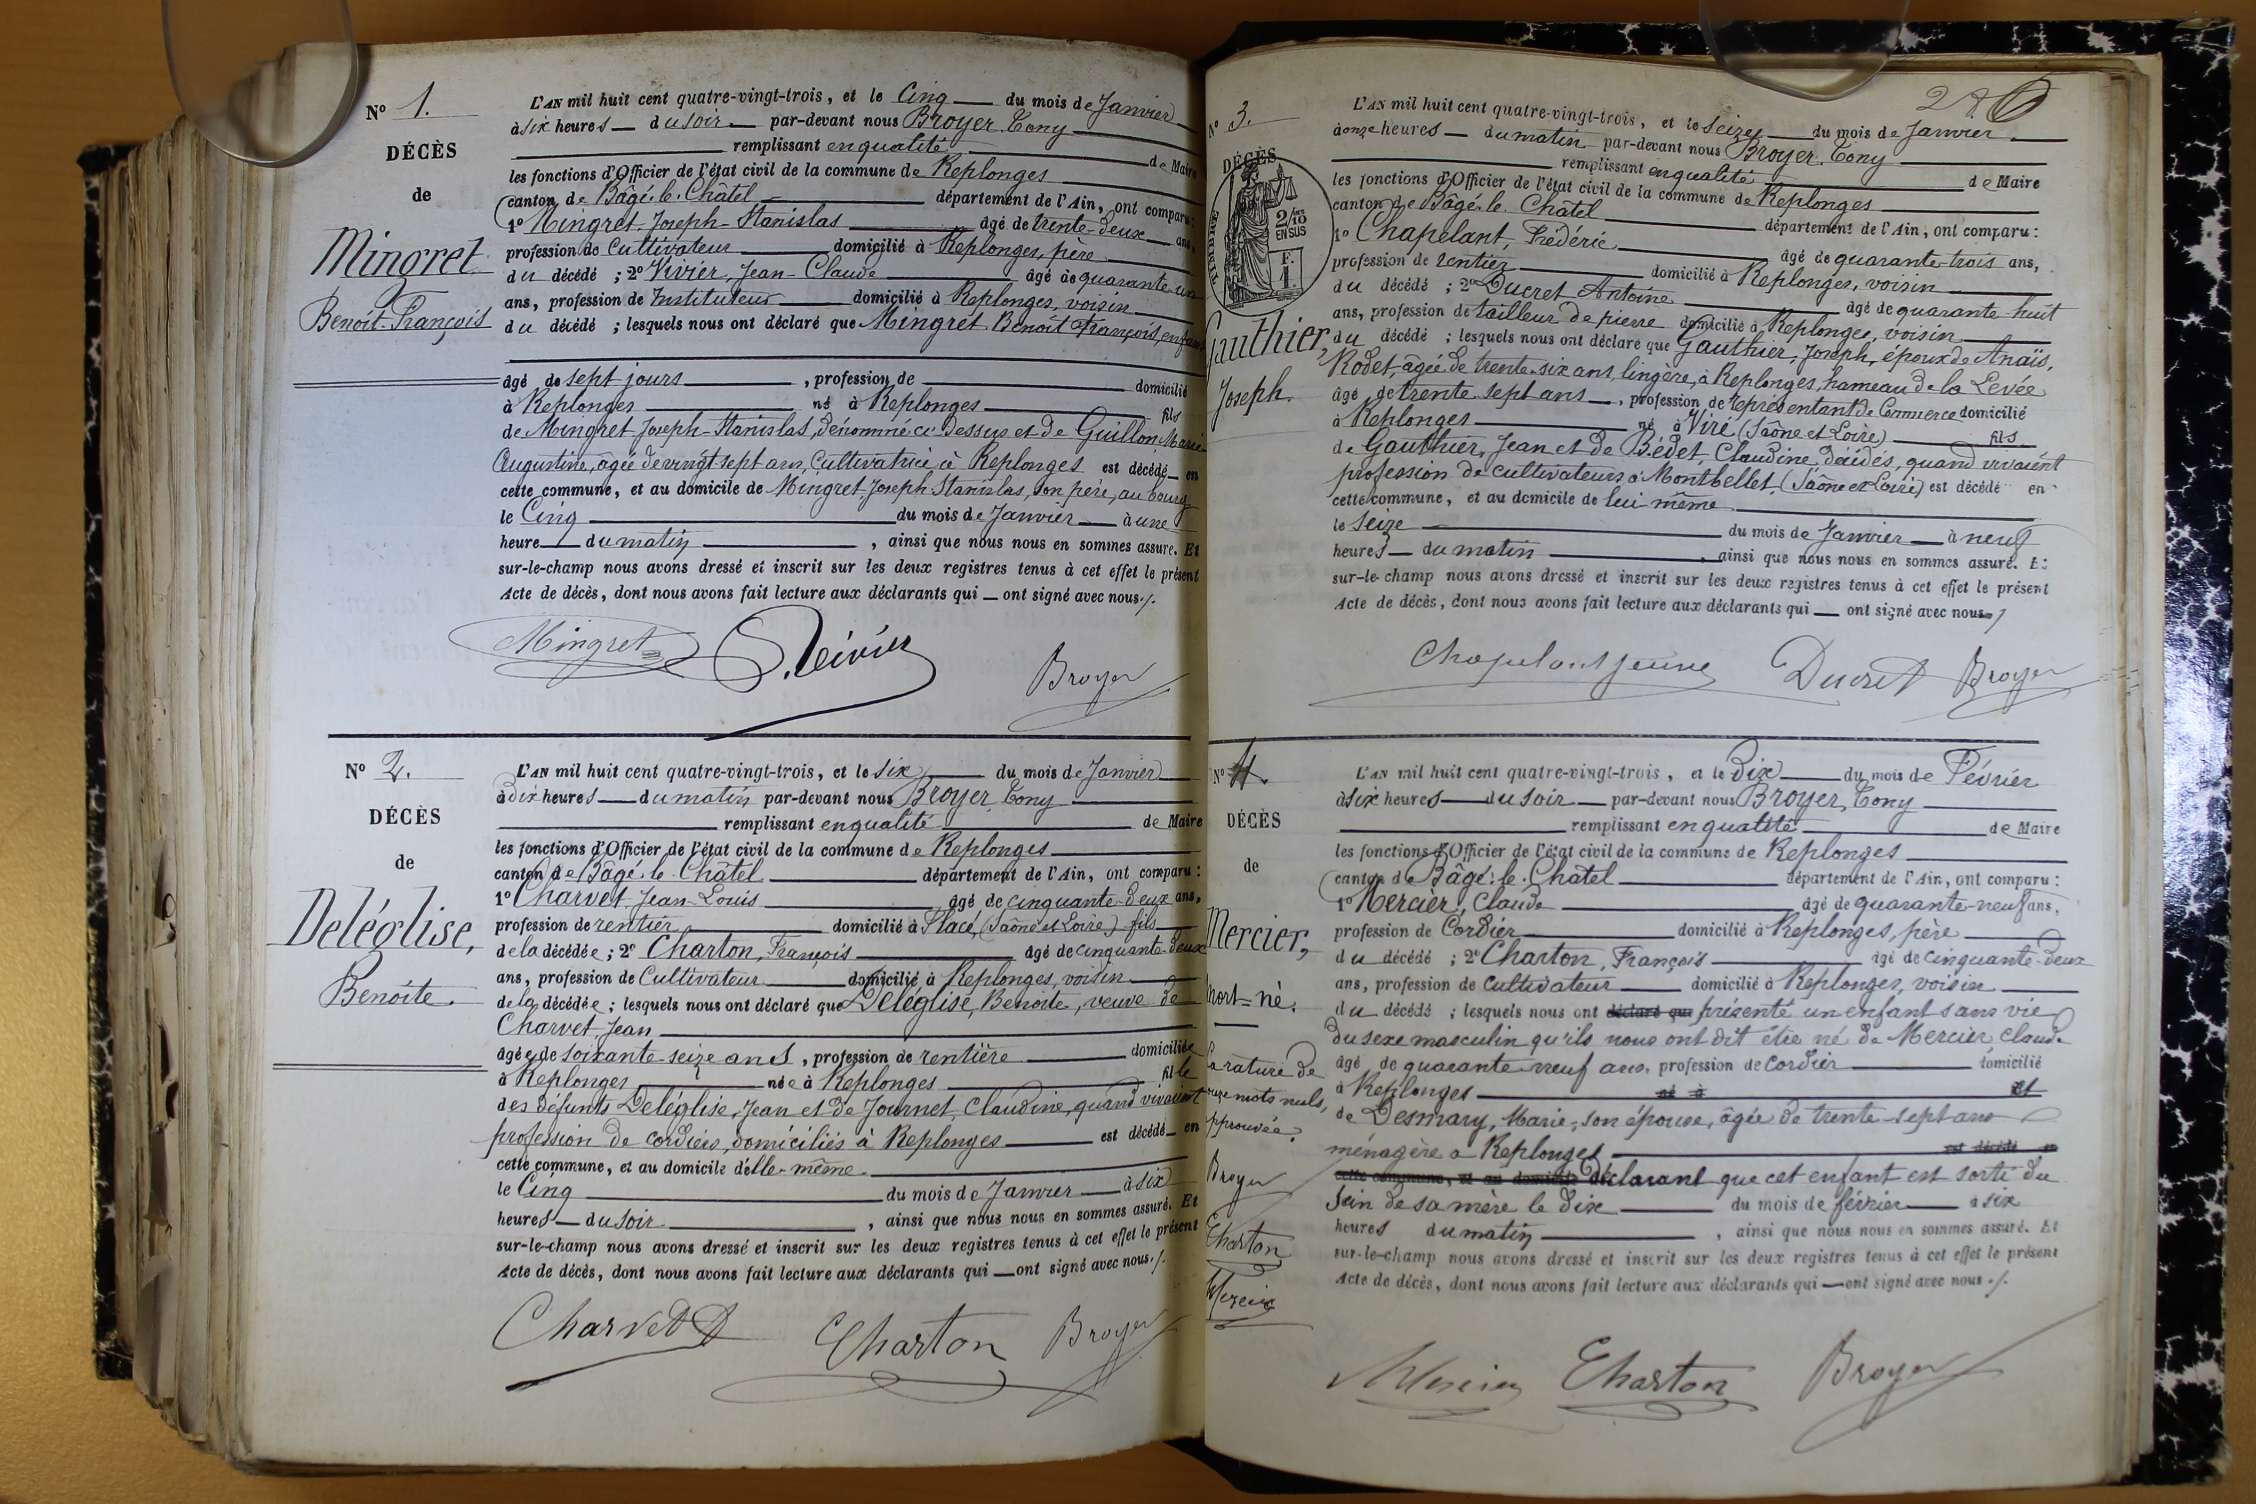 N° 1.
DÉCÈS
de
Mingret
Benoît-François
L'AN mil huit cent quatre-vingt-trois, et le Cinq du mois de Janvier
à six heures du soir par-devant nous Broyer, Tony
remplissant en qualité de Maire
les fonctions d'Officier de l'état civil de la commune de Replonges
canton de Bâgé-le-Châtel département de l'Ain, ont comparu:
1° Mingret, Joseph-Stanislas âgé de trente-deux ans,
profession de Cultivateur domicilié à Replonges, père
du décédé ; 2° Vivier, Jean-Claude âgé de quarante un
ans, profession de Instituteur domicilié à Replonges, voisin
du décédé ; lesquels nous ont déclaré que Mingret Benoît François, enfant
âgé de sept jours, profession de domicilié
à Replonges né à Replonges fils
de Mingret Joseph-Stanislas, dénommé ci-dessus et de Guillon, Marie
Augustine, âgée de vingt sept ans, Cultivatrice, à Replonges est décédé en
cette commune, et au domicile de Mingret Joseph Stanislas, son père, au bourg
le Cinq du mois de Janvier à une
heure du matin, ainsi que nous nous en sommes assuré. Et
sur-le-champ nous avons dressé et inscrit sur les deux registres tenus à cet effet le présent
Acte de décès, dont nous avons fait lecture aux déclarants qui ont signé avec nous./.
Mingret Vivier Broyer
N° 2.
DÉCÈS
de
Deléglise,
Benoîte.
L'AN mil huit cent quatre-vingt-trois, et le six du mois de Janvier
à dix heures du matin par-devant nous Broyer, Tony
remplissant en qualité de Maire
les fonctions d'Officier de l'état civil de la commune de Replonges
canton de Bâgé-le-Châtel département de l'Ain, ont comparu :
1° Charvet, Jean-Louis âgé de cinquante-deux ans,
profession de rentier domicilié à Placé, (Saône et Loire) fils
de la décédée ; 2° Charton, François âgé de cinquante-deux
ans, profession de Cultivateur domicilié à Replonges, voisin
de la décédée ; lesquels nous ont déclaré que Deléglise, Benoîte, veuve de
Charvet, Jean
âgée de soixante-seize ans, profession de rentière domiciliée
à Replonges née à Replonges fille
des défunts Deléglise, Jean et de Journet, Claudine, quand vivaient
profession de cordiers, domiciliés à Replonges est décédé en
cette commune, et au domicile d'elle-même
le Cinq du mois de Janvier à six
heures du soir, ainsi que nous nous en sommes assuré. Et
sur-le-champ nous avons dressé et inscrit sur les deux registres tenus à cet effet le présent
Acte de décès, dont nous avons fait lecture aux déclarants qui ont signé avec nous./.
Charvet Charton Broyer
N° 3.
DÉCÈS
TIMBRE
2/10
EN SUS
F.
1.
Gauthier,
Joseph.
L'AN mil huit cent quatre-vingt-trois, et le seize du mois de Janvier
à onze heures du matin par-devant nous Broyer, Tony
remplissant en qualité de Maire
les fonctions d'Officier de l'état civil de la commune de Replonges
canton de Bâgé-le-Châtel département de l'Ain, ont comparu :
1° Chapelant, Frédéric âgé de quarante-trois ans,
profession de rentier domicilié à Replonges, voisin
du décédé ; 2° Ducret Antoine âgé de quarante-huit
ans, profession de tailleur de pierre domicilié à Replonges, voisin
du décédé ; lesquels nous ont déclaré que Gauthier, Joseph, époux de Anaïs,
Rodet, âgée de trente-six ans, lingère, à Replonges, hameau de la Levée
âgé de trente-sept ans, profession de représentant de Commerce domicilié
à Replonges né à Viré (Saône et Loire) fils
de Gauthier, Jean et de Bédet, Claudine, décédés, quand vivaient
profession de cultivateurs à Montbellet, (Saône et Loire) est décédé en
cette commune, et au domicile de lui-même
le seize du mois de Janvier à neuf
heures du matin, ainsi que nous nous en sommes assuré. Et
sur-le-champ nous avons dressé et inscrit sur les deux registres tenus à cet effet le présent
Acte de décès, dont nous avons fait lecture aux déclarants qui ont signé avec nous./
Chapelant jeune Ducret Broyer
N° 4.
DÉCÈS
de
Mercier,
Mort-né.
La rature de
onze mots nuls,
approuvée.
Broyer
Charton
Mercier
L'AN mil huit cent quatre-vingt-trois, et le Dix du mois de Février
à six heures du soir par-devant nous Broyer, Tony
remplissant en qualité de Maire
les fonctions d'Officier de l'état civil de la commune de Replonges
canton de Bâgé-le-Châtel département de l'Ain, ont comparu :
1° Mercier, Claude âgé de quarante-neuf ans,
profession de Cordier domicilié à Replonges, père
du décédé ; 2° Charton, François âgé de cinquante-deux
ans, profession de Cultivateur domicilié à Replonges, voisin
du décédé ; lesquels nous ont déclaré que présenté un enfant sans vie
du sexe masculin qu'ils nous ont dit être né de Mercier Claude
âgé de quarante neuf ans, profession de cordier domicilié
à Replonges né à et
de Desmary, Marie, son épouse, âgée de trente-sept ans
ménagère à Replonges est décédé en
cette commune, et au domicile de Déclarant que cet enfant est sorti du
sein de sa mère le dix du mois de février à six
heures du matin, ainsi que nous nous en sommes assuré. Et
sur-le-champ nous avons dressé et inscrit sur les deux registres tenus à cet effet le présent
Acte de décès, dont nous avons fait lecture aux déclarants qui ont signé avec nous./.
Mercier Charton Broyer